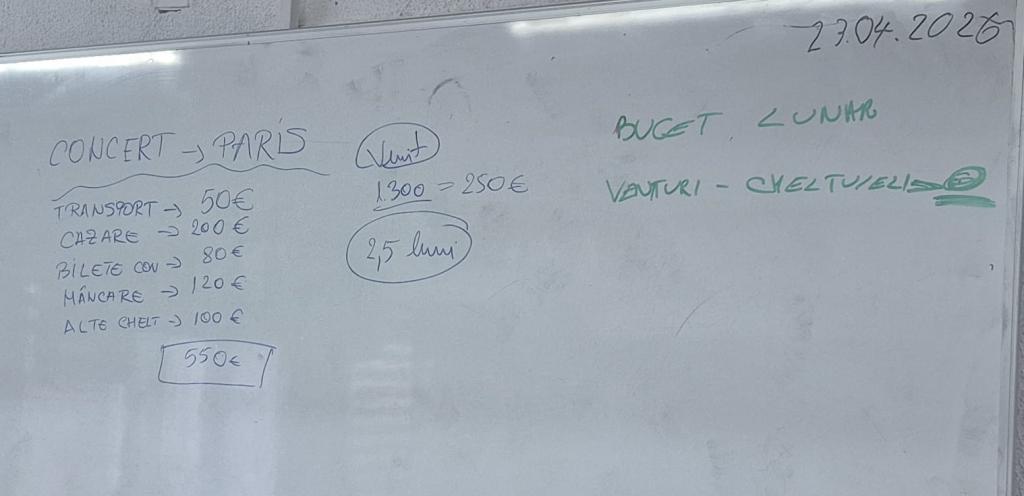 23.04.2026
CONCERT → PARIS
TRANSPORT → 50€
CAZARE → 200 €
BILETE CON → 80€
MÂNCARE → 120€
ALTE CHELT → 100 €
550€
Venit
1.300 = 250€
2,5 luni
BUGET LUNAR
VENITURI - CHELTUIELI =